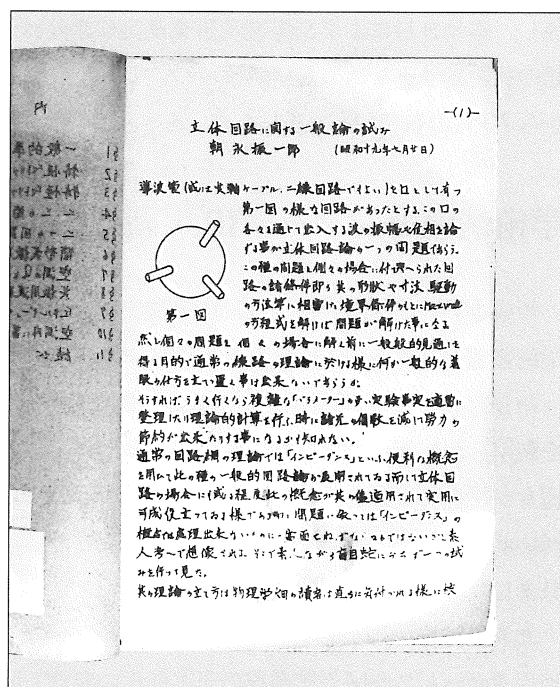 -(1)-
立体回路に関する一般論の試み
朝永振一郎 (昭和十九年七月廿日)
導波管(或は実軸ケーブル、二線回路でもよい)を口として有つ
第一図の様な回路があったとする、この口の
各々を通じて出入する波の振幅や位相を論
ずる事が立体回路論の一つの問題であらう。
この種の問題は個々の場合に付与へられた回
路の諸条件即ち其の形状や寸法、駆動
の方法等に相當した境界條件のもとにMaxwell
の方程式を解けば問題が解けた事になる
第一図
然し個々の問題を個々の場合に解く前に一般的見通しを
得る目的で通常の線路の理論に於ける様に何か一般的な着
眼の仕方を立て置く事は出来ないであらうか。
そうすればうまく行くなら複雑な「パラメーター」の多い実験事実を適當に
整理したり理論的計算を行ふ時に諸元の個数を減じ労力の
節約が出来たりする事になるかも知れない。
通常の回路網の理論では「インピーダンス」といふ便利な概念
を用ひて此の種の一般的回路論が展開されてゐる而して立体回
路の場合にも或る程度此の概念が其の儘適用されて実用に
可成役立ってゐる様であるが問題に依っては「インピーダンス」の
概念では処理出来ないものに
人考へで想像される そこで
みを行って見た。
其の理論の立て方は物理学畑の讀者は直ちに気付かれる様に
内
§1 一般的
§2
§3
§4
§5
§6
§7
§8
§9
§10
§11